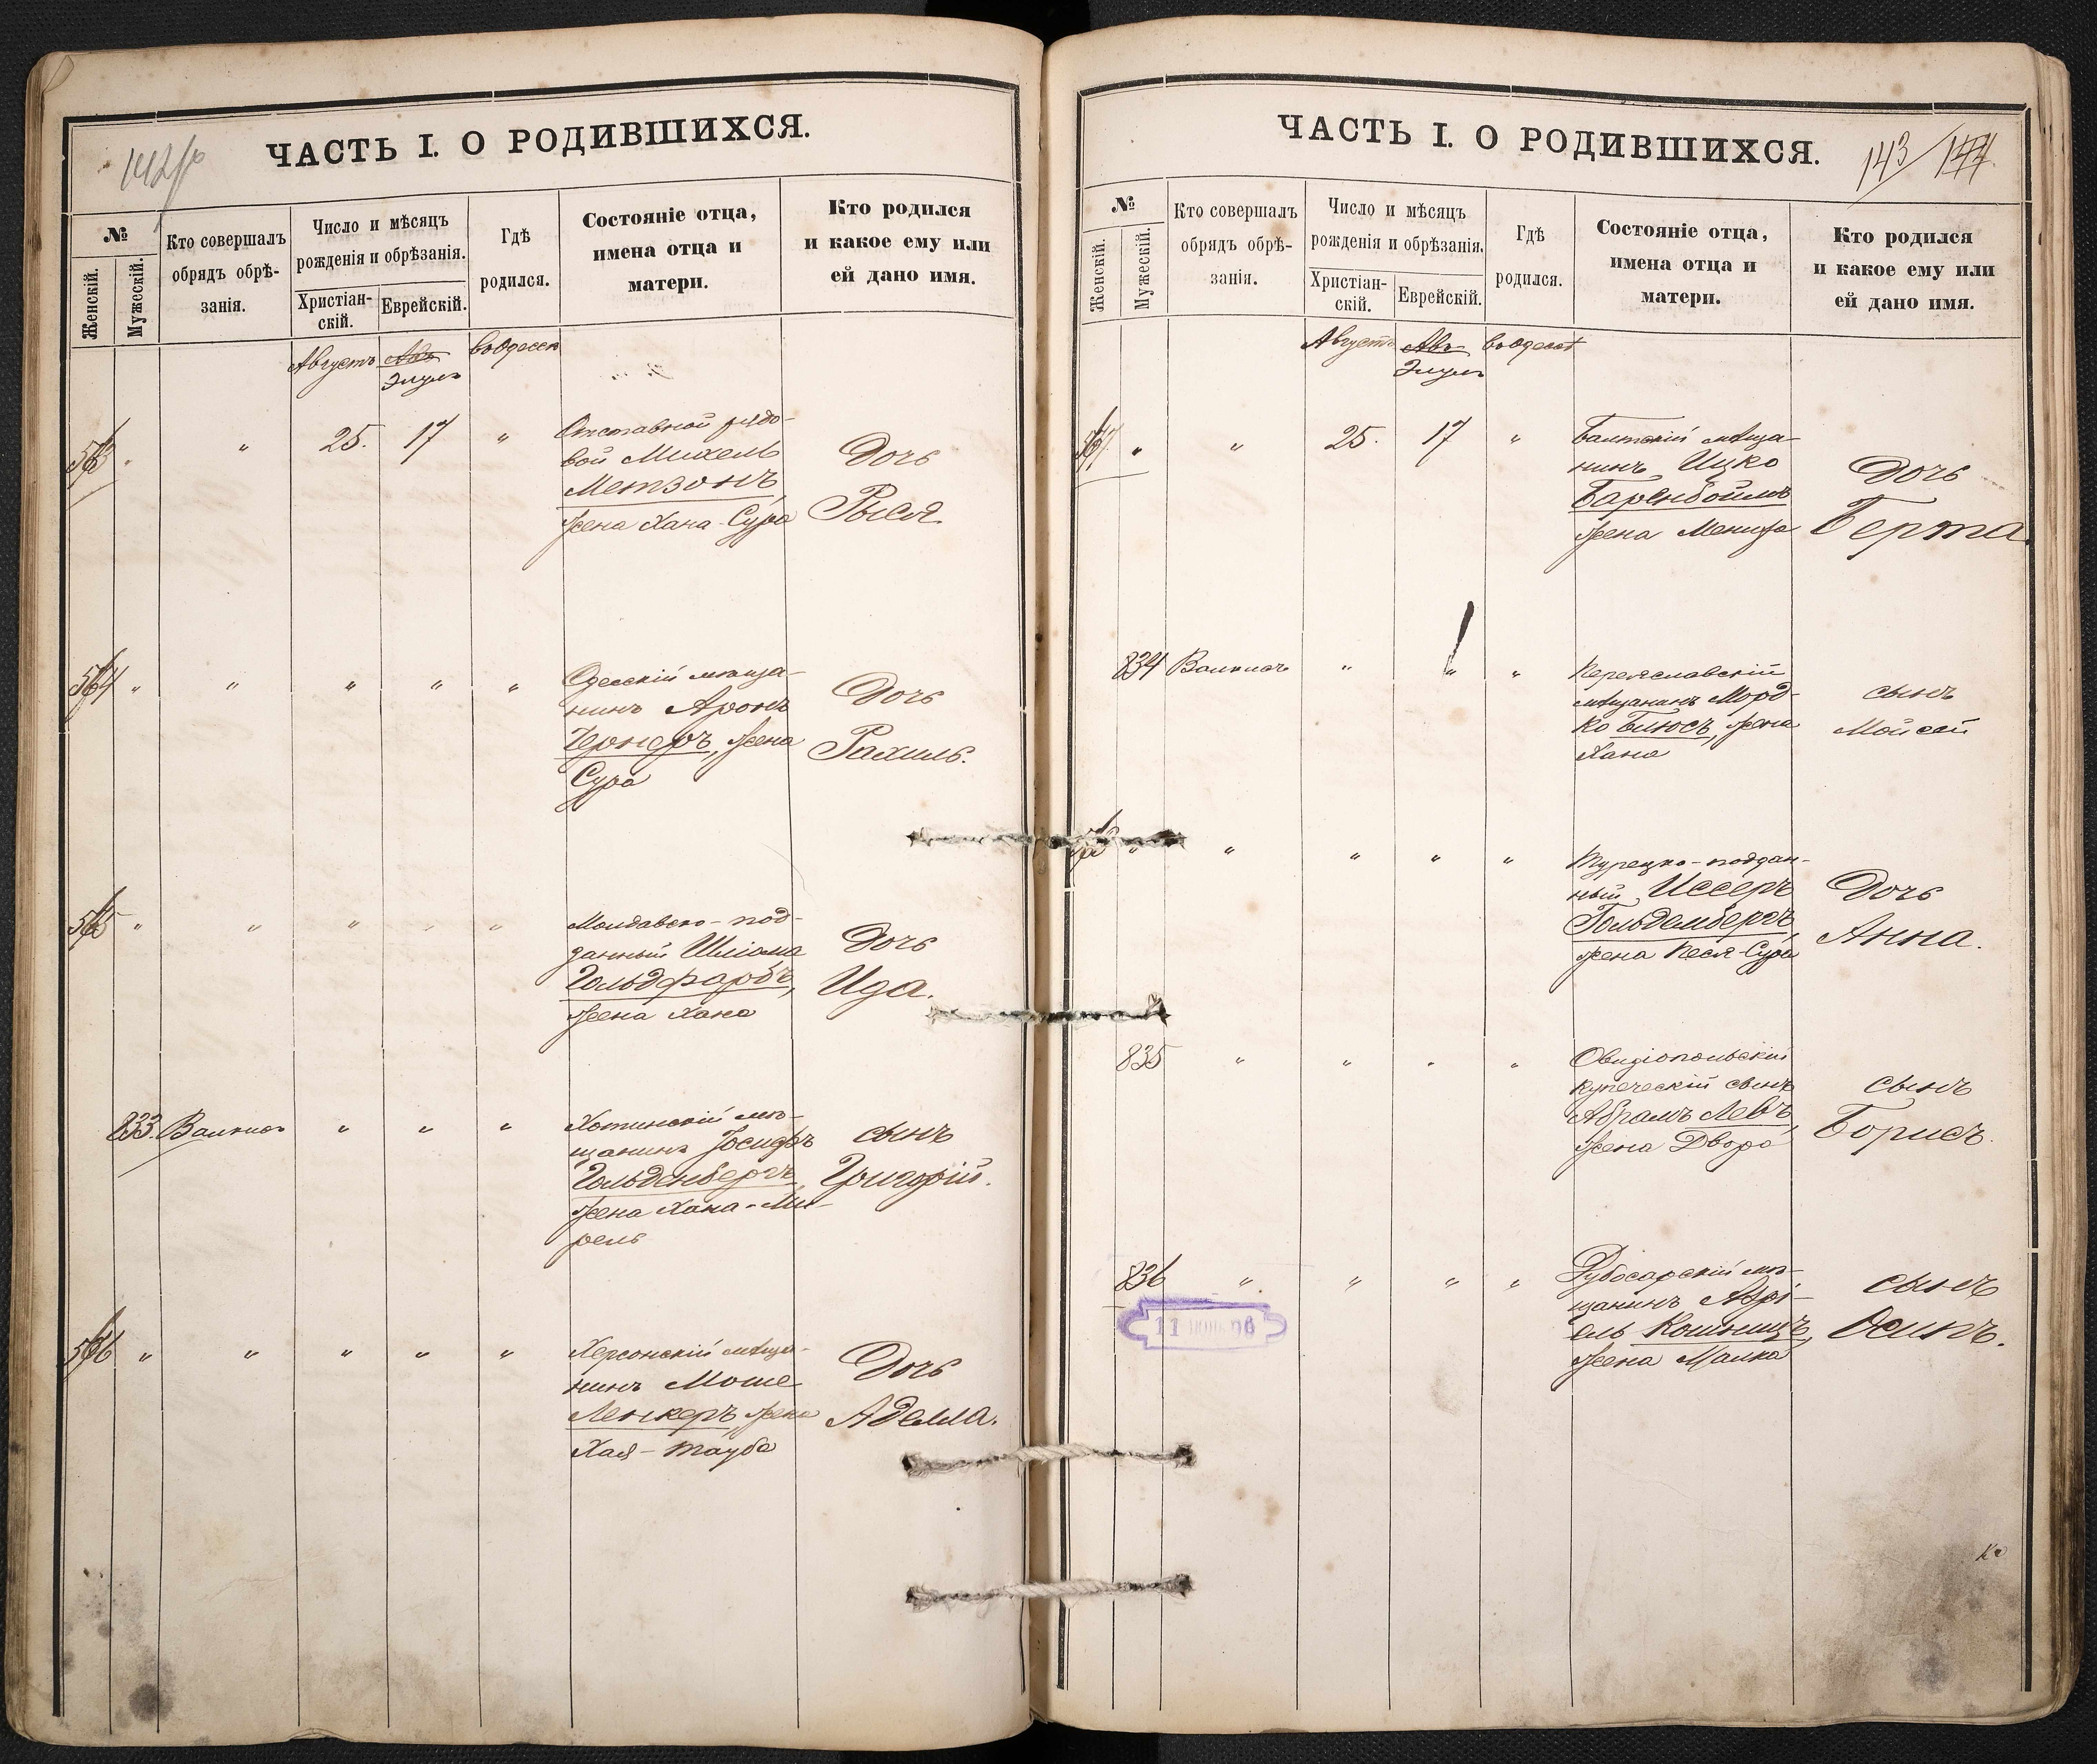 142/об
ЧАСТЬ I. О РОДИВШИХСЯ.
№
Женскій.
Мужескій.
Кто совершалъ
обрядъ обрѣ-
занія.
Число и мѣсяцъ
рожденія и обрѣзанія.
Христіан-
скій.
Еврейскій.
Гдѣ
родился.
Состояніе отца,
имена отца и
матери.
Кто родился
и какое ему или
ей дано имя.
Августъ Авъ въ Одессѣ
Элулъ
563 " " 25. 17 "
Отставной рядо-
вой Михель
Метзонъ,
жена Хана-Сура
Дочь
Рыся.
564 " " " " "
Одесскій мѣща-
нинъ Аронъ
Чернеръ, жена
Сура
Дочь
Рахиль.
565 " " " " "
Молдавско-под-
данный Шліома
Гольдфарбъ,
жена Хана
Дочь
Ида.
833. " " "
Хотинскій мѣ-
щанинъ Іосифъ
Гольденбергъ,
жена Хана-Ми-
рель
сынъ
Григорій.
566 " " " " "
Херсонскій мѣща-
нинъ Моше
Ленкеръ, жена
Хая-Тауба
Дочь
Аделла.
ЧАСТЬ I. О РОДИВШИХСЯ.
143/144
№
Женскій.
Мужескій.
Кто совершалъ
обрядъ обрѣ-
занія.
Число и мѣсяцъ
рожденія и обрѣзанія.
Христіан-
скій.
Еврейскій.
Гдѣ
родился.
Состояніе отца,
имена отца и
матери.
Кто родился
и какое ему или
ей дано имя.
Августъ Авъ въ Одессѣ
Элулъ
567. " " 25. 17 "
Балтскій мѣща-
нинъ Ицко
Баренбоймъ
жена Мениха
Дочь
Берта.
834 " " "
Переяславскій
мѣщанинъ Морд-
ко Биюсъ, жена
Хана
сынъ
Мойсей
568 " " " " "
Турецко-поддан-
ный Иссеръ
Гольденбергъ,
жена Песя-Сура
Дочь
Анна.
835 " " " "
Овидіопольскій
купеческій сынъ
Абрамъ Левъ,
жена Двора
сынъ
Борисъ.
836 " " " "
Дубосарскій мѣ-
щанинъ Абрі-
ель Кошницъ,
жена Малка
сынъ
Осипъ.